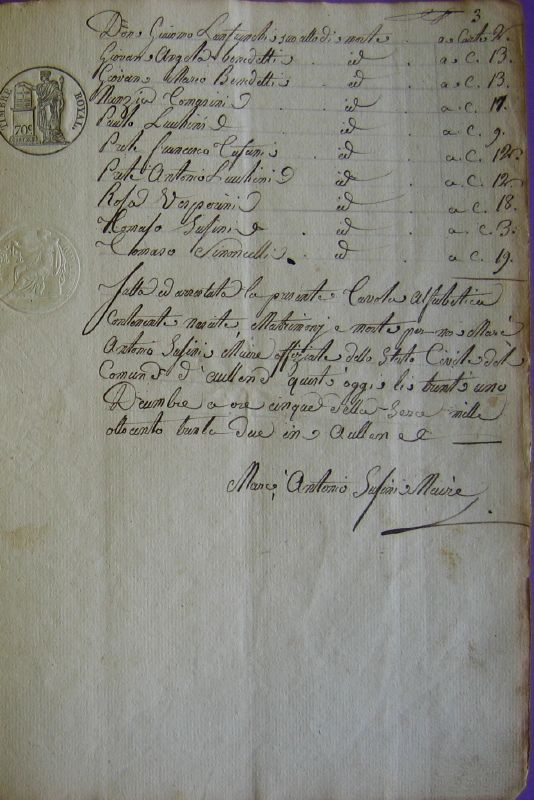 3
Don Giacomo Lanfranchi suo atto di morte a Carte 2.
Giovan Angelo Benedetti id a C. 13.
Giovan Marco Benedetti id a C. 13.
Nunzia id a C. 17.
Paolo Lucchini id a C. 9.
Prete Francesco Susini id a C. 12.
Prete Antonio Lucchini id a C. 12.
Rosa Vesperini id a C. 18.
Tomaso Susini id a C. 3.
Tomaso Simoncelli id a C. 19.
Fatta ed arrestata la presente Tavola Alfabetica
Contenente nascite, Matrimonj e morte per noi Marc'
Antonio Susini Maire offiziale dello Stato Civile del
Comune d'aullene quest'oggi li trent'uno
Decembre a ore cinque della Sera mille
ottocento trenta due in aullene
Marc'Antonio Susini Maire
TIMBRE ROYAL
70c